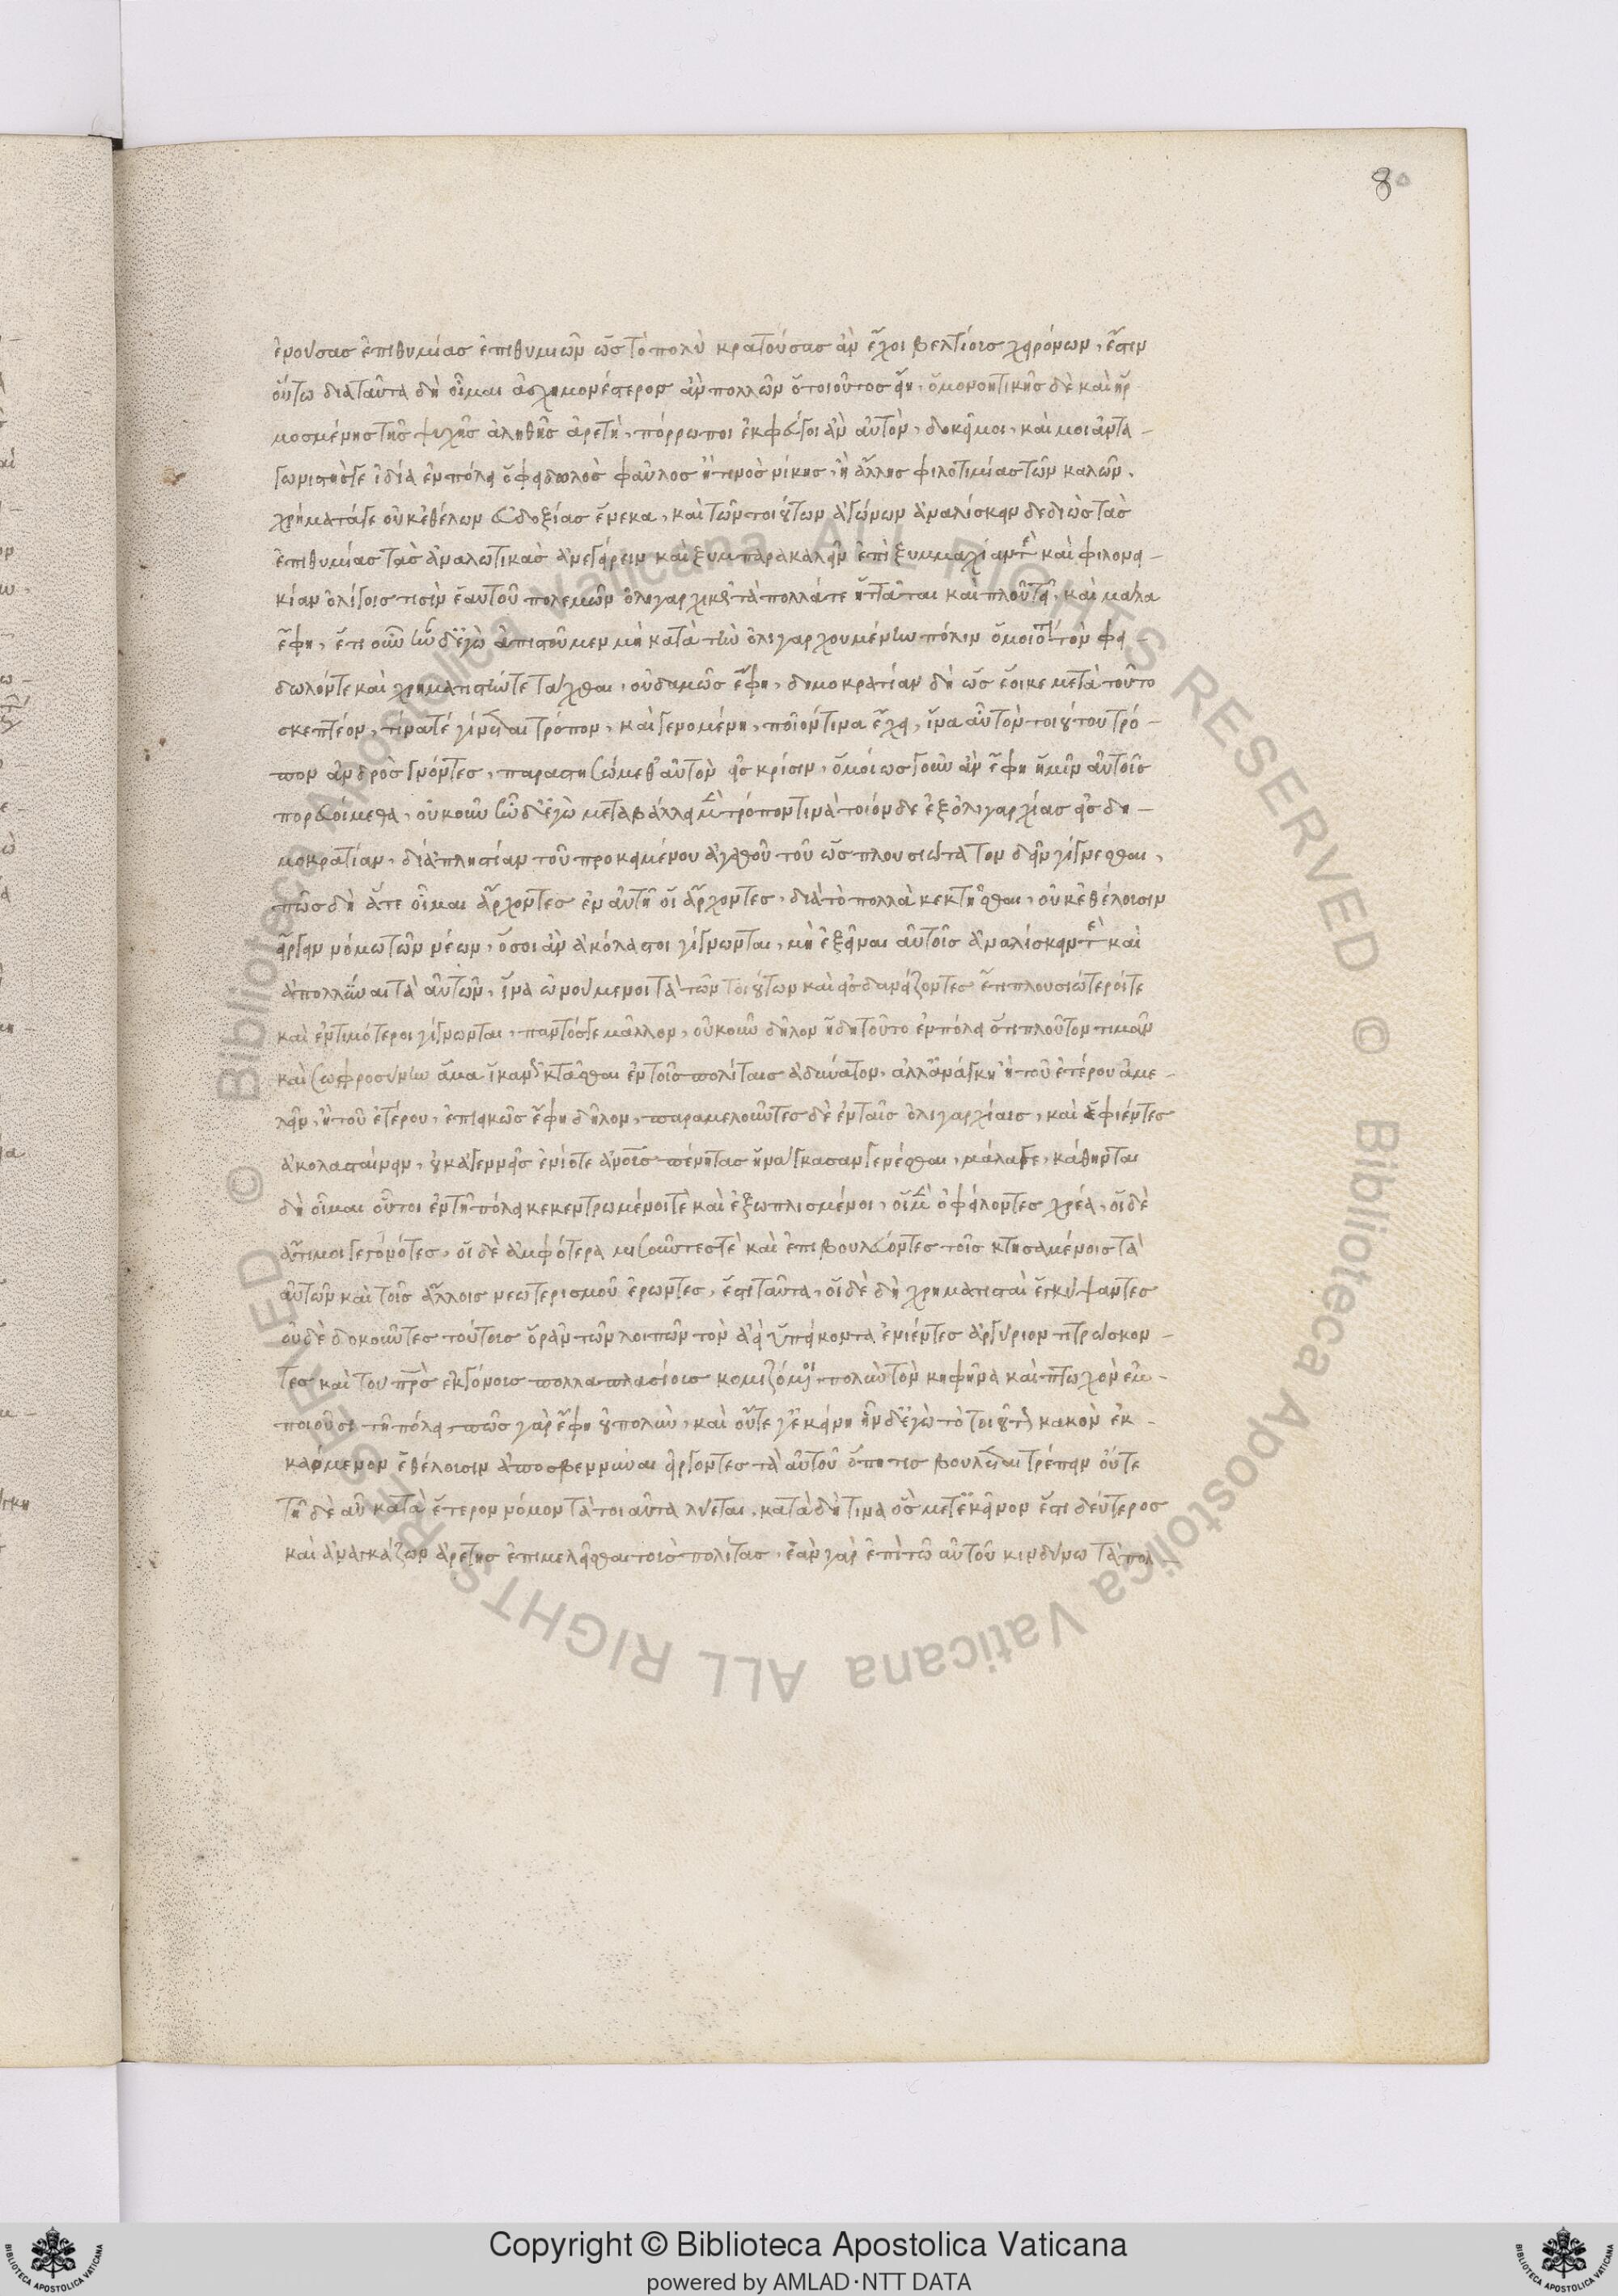 80
ἐνούσας ἐπιθυμίας ἐπιθυμιῶν ὡς τὸ πολὺ κρατούσας ἂν ἔχοι βελτίους χειρόνων, ἔστιν
οὕτω διαταῦτα δὴ οἶμαι εὐσχημονέστερος ἂν πολλῶν ὁ τοιοῦτος εἴη, ὁμονοητικῆς δὲ καὶ ἡρ
μοσμένης τῆς ψυχῆς ἀληθὴς ἀρετὴ, πόρρω ποι ἐκφεύγοι ἂν αὐτόν, δοκεῖ μοι, καὶ μοι ἀντα-
γωνιστής γε ἰδία ἐν πόλει ὁ φειδωλὸς φαῦλος ἤ τινος νίκης, ἢ ἄλλης φιλοτιμίας τῶν καλῶν.
χρήματά γε οὐκ ἐθέλων εὐδοξίας ἕνεκα, καὶ τῶν τοιούτων ἀγώνων ἀναλίσκειν δεδιὼς τὰς
ἐπιθυμίας τὰς ἀναλωτικὰς ἀνεγείρειν καὶ ξυμπαρακαλεῖν ἐπὶ ξυμμαχίαν τὲ καὶ φιλονει-
κίαν ὀλίγοις τισὶν ἑαυτοῦ πολεμῶν ὀλιγαρχικῶς τὰ πολλά τε ἡττᾶται καὶ πλουτεῖ, καὶ μάλα
ἔφη, ἔτι οὖν ἦν δ' ἐγὼ ἀπιστοῦμεν μὴ κατὰ τὴν ὀλιγαρχουμένην πόλιν ὁμοιότητι τὸν φει-
δωλόν τε καὶ χρηματιστήν τετάχθαι, οὐδαμῶς ἔφη, δημοκρατίαν δὴ ὡς ἔοικε μετὰ τοῦτο
σκεπτέον, τίνα τέ γίγνεται τρόπον, καὶ γενομένη, ποῖόν τινα ἔχει, ἵνα αὖ τὸν τοιούτου τρό-
πον ἀνδρὸς γνόντες, παραστησώμεθ' αὐτὸν εἰς κρίσιν, ὁμοίως γοῦν ἂν ἔφη ἡμῖν αὐτοῖς
πορευοίμεθα, οὐκοῦν ἦν δ' ἐγὼ μεταβάλλει μὲν τρόπον τινὰ τοιόνδε ἐξ ὀλιγαρχίας εἰς δη-
μοκρατίαν, δι' ἀπληστίαν τοῦ προκειμένου ἀγαθοῦ τοῦ ὡς πλουσιώτατον δεῖν γίγνεσθαι,
πῶς δὴ ἅτε οἶμαι ἄρχοντες ἐν αὐτῇ οἱ ἄρχοντες, διὰ τὸ πολλὰ κεκτῆσθαι, οὐκ ἐθέλουσιν
εἴργειν νόμω τῶν νέων, ὅσοι ἂν ἀκόλαστοι γίγνωνται, μὴ ἐξεῖναι αὐτοῖς ἀναλίσκειν τὲ καὶ
ἀπολλύναι τὰ αὑτῶν, ἵνα ὠνούμενοι τὰ τῶν τοιούτων καὶ εἰσδανείζοντες ἔτι πλουσιώτεροί τε
καὶ ἐντιμότεροι γίγνωνται, παντός γε μᾶλλον, οὐκοῦν δῆλον ἤδη τοῦτο ἐν πόλει ὅτι πλοῦτον τιμᾶν
καὶ σωφροσύνην ἅμα ἱκανῶς κτᾶσθαι ἐν τοῖς πολίταις ἀδύνατον, ἀλλ' ἀνάγκη ἢ τοῦ ἑτέρου ἀμε-
λεῖν, ἢ τοῦ ἑτέρου, ἐπιεικῶς ἔφη δῆλον, παραμελοῦντες δὲ ἐν ταῖς ὀλιγαρχίαις, καὶ ἐφιέντες
ἀκολασταίνειν, οὐκ ἀγεννεῖς ἐνίοτε ἀνοὺς πένητας ἠνάγκασαν γενέσθαι, μάλα γε, κάθηνται
δὴ οἶμαι οὗτοι ἐν τῇ πόλει κεκεντρωμένοι τὲ καὶ ἐξωπλισμένοι, οἱ μὲν ὀφείλοντες χρέα, οἱ δὲ
ἄτιμοι γεγονότες, οἱ δὲ ἀμφότερα μισοῦντες τὲ καὶ ἐπιβουλεύοντες τοῖς κτησαμένοις τὰ
αὑτῶν καὶ τοῖς ἄλλοις νεωτερισμοῦ ἐρῶντες, ἔστι ταῦτα, οἱ δὲ δὴ χρηματισταὶ ἐγκύψαντες
οὐδὲ δοκοῦντες τούτοις ὁρᾶν τῶν λοιπῶν τὸν ἀεὶ ὑπείκοντα ἐνιέντες ἀργύριον τιτρώσκον-
τες καὶ του πρς ἐκγόνους πολλαπλασίους κομιζόμενοι, πολὺν τὸν κηφῆνα καὶ πτωχὸν ἐμ-
ποιοῦσι τῇ πόλει, πῶς γὰρ ἔφη οὐ πολὺν, καὶ οὔτε γ' ἐκείνη ἦν δ' ἐγὼ τὸ τοιοῦτον κακὸν ἐκ-
καόμενον ἐθέλουσιν ἀποσβεννύναι εἴργοντες τὰ αὑτοῦ ὅπη τις βούλεται τρέπειν οὔτε
τῇδε αὖ κατὰ ἕτερον νόμον τὰ τοιαῦτα λύεται, κατὰ δὴ τίνα ὃς μετ' ἐκεῖνον ἔστι δεύτερος
καὶ ἀναγκάζων ἀρετῆς ἐπιμελεῖσθαι τοὺς πολίτας, ἐὰν γὰρ ἐπὶ τῷ αὑτοῦ κινδύνω τὰ πολ
© Biblioteca Apostolica Vaticana ALL RIGHTS RESERVED © Biblioteca Apostolica Vaticana ALL RIGHTS RESERVED
Copyright © Biblioteca Apostolica Vaticana
powered by AMLAD·NTT DATA
BIBLIOTECA APOSTOLICA VATICANA
BIBLIOTECA APOSTOLICA VATICANA